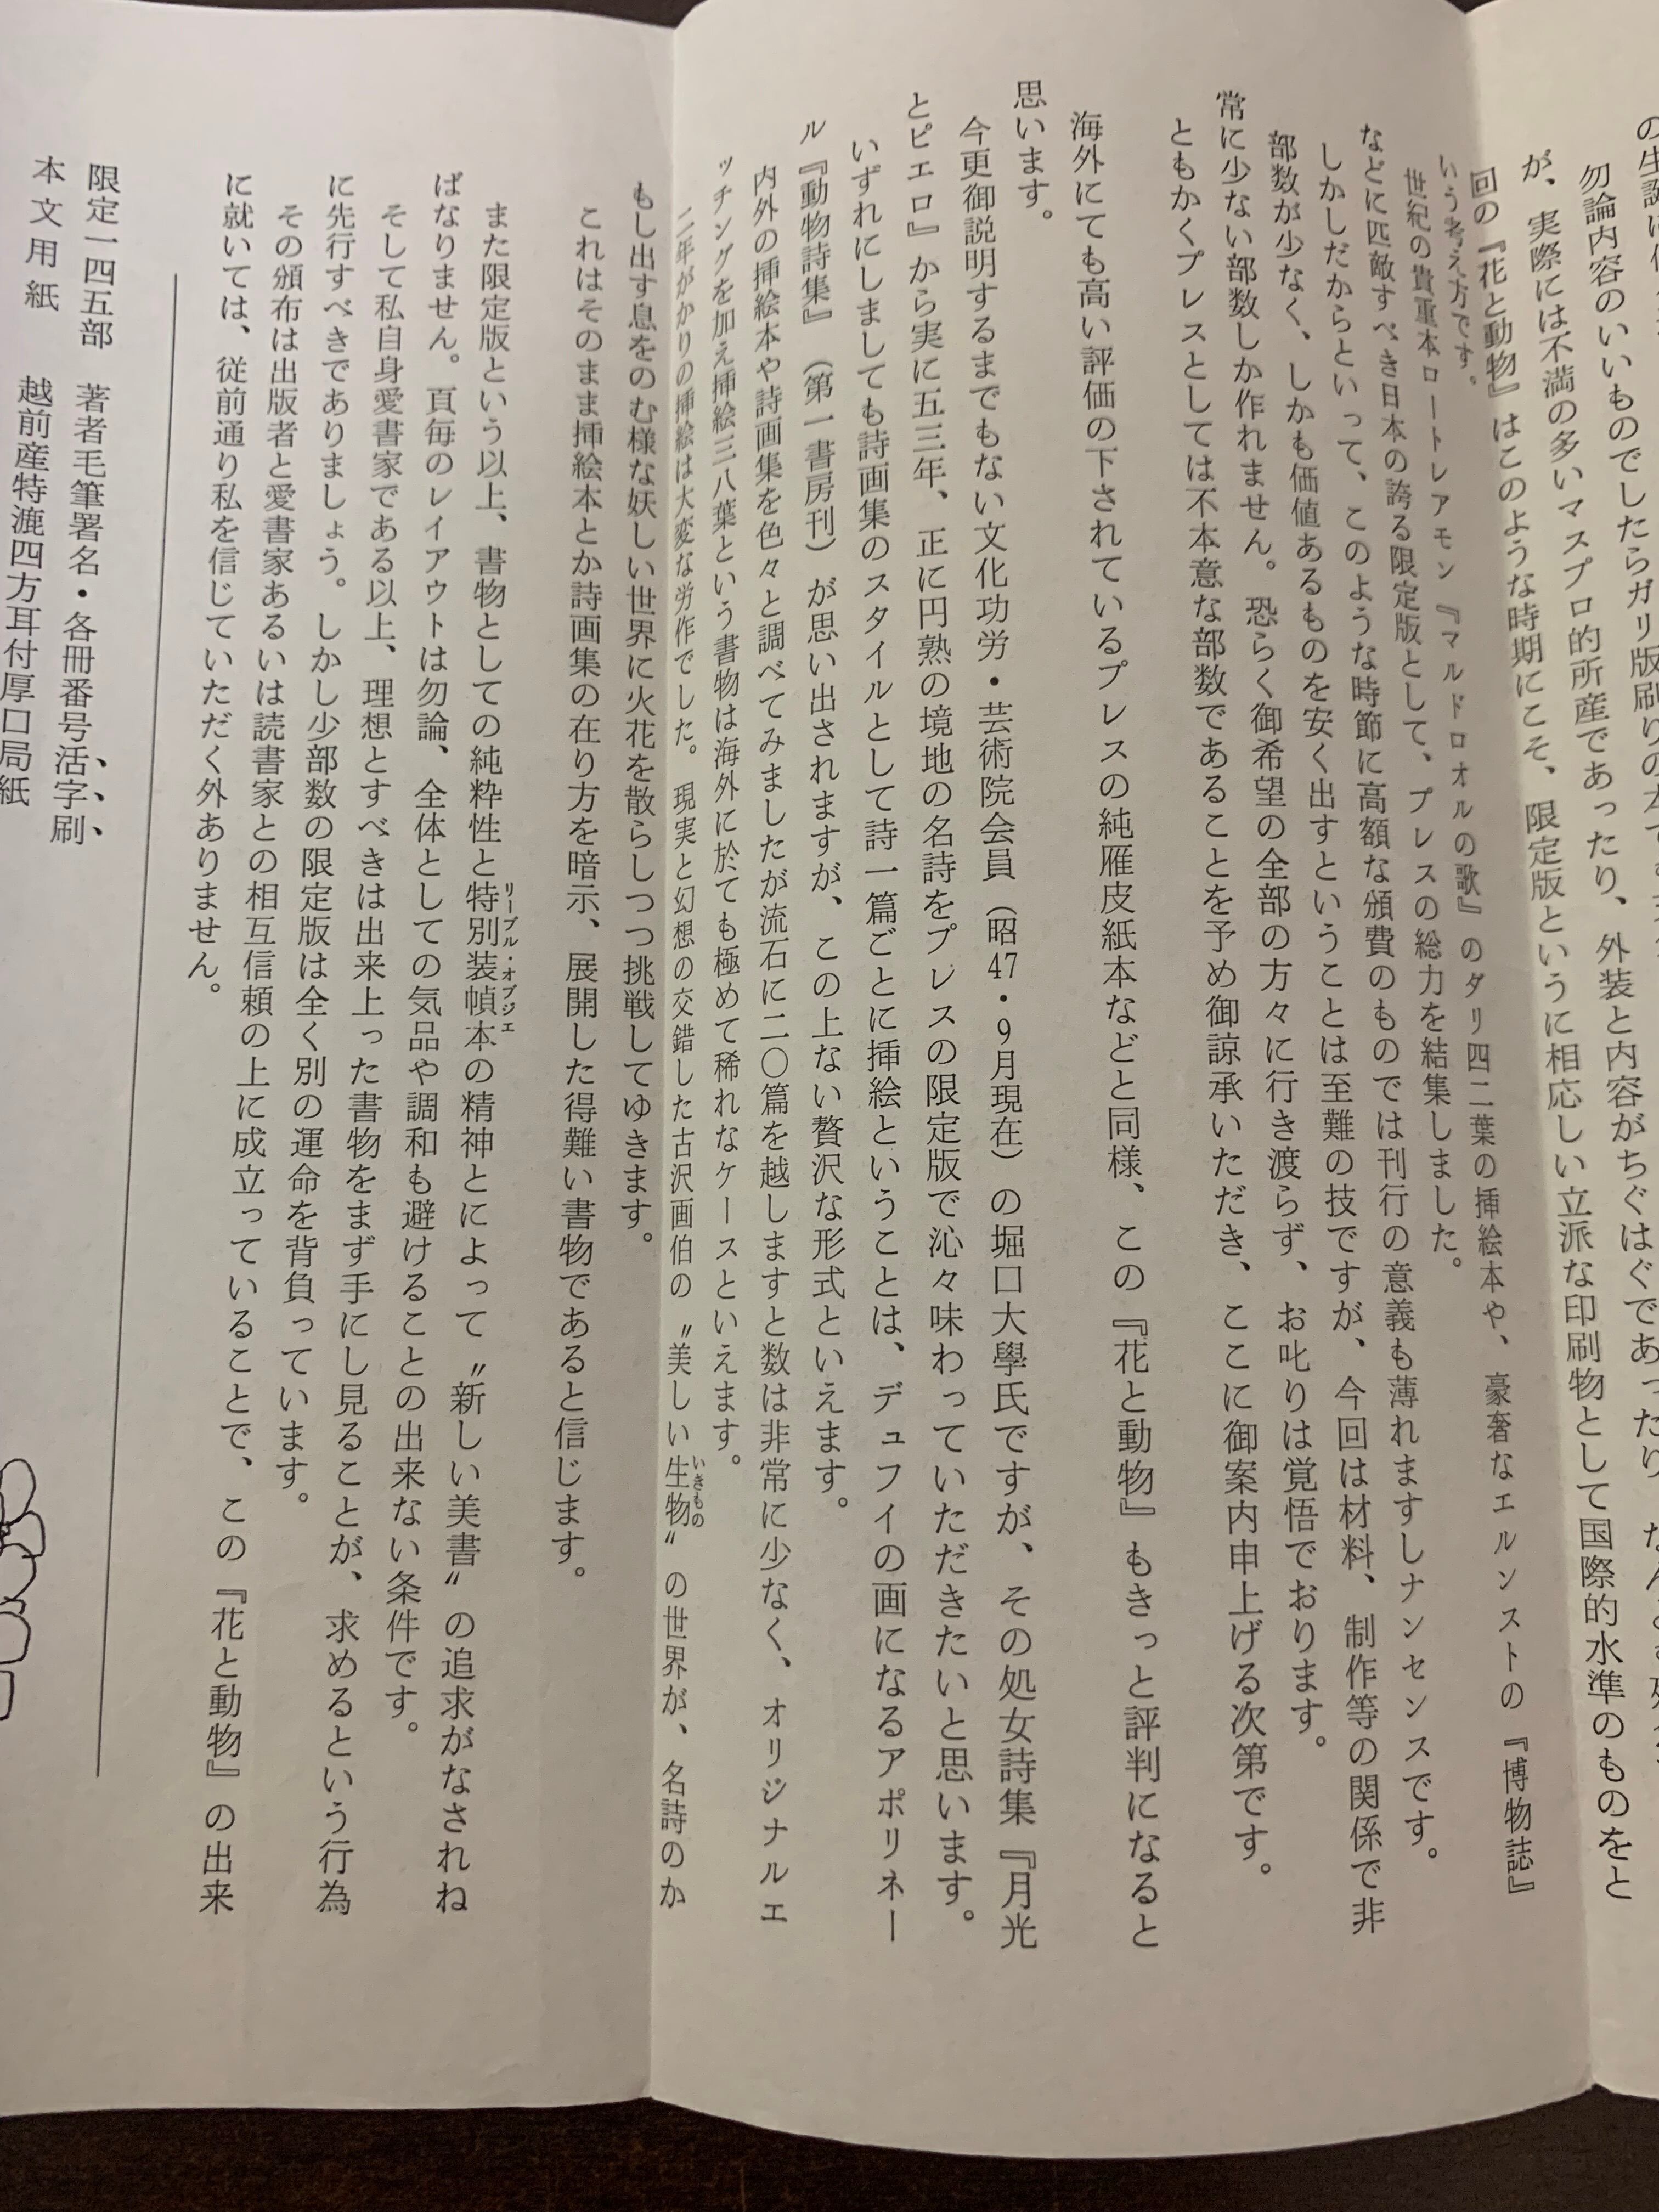 の生誕に
勿論内容のいいものでしたらガリ版刷りの本で
が、実際には不満の多いマスプロ的所産であったり、外装と内容がちぐはぐであったり
回の『花と動物』はこのような時期にこそ、限定版というに相応しい立派な印刷物として国際的水準のものをと
いう考え方です。
世紀の貴重本ロートレアモン『マルドロオルの歌』のダリ四二葉の挿絵本や、豪奢なエルンストの『博物誌』
などに匹敵すべき日本の誇る限定版として、プレスの総力を結集しました。
しかしだからといって、このような時節に高額な頒費のものでは刊行の意義も薄れますしナンセンスです。
部数が少なく、しかも価値あるものを安く出すということは至難の技ですが、今回は材料、制作等の関係で非
常に少ない部数しか作れません。恐らく御希望の全部の方々に行き渡らず、お叱りは覚悟でおります。
ともかくプレスとしては不本意な部数であることを予め御諒承いただき、ここに御案内申上げる次第です。
海外にても高い評価の下されているプレスの純雁皮紙本などと同様、この『花と動物』もきっと評判になると
思います。
今更御説明するまでもない文化功労・芸術院会員（昭47・9月現在）の堀口大學氏ですが、その処女詩集『月光
とピエロ』から実に五三年、正に円熟の境地の名詩をプレスの限定版で沁々味わっていただきたいと思います。
いずれにしましても詩画集のスタイルとして詩一篇ごとに挿絵ということは、デュフイの画になるアポリネー
ル『動物詩集』（第一書房刊）が思い出されますが、この上ない贅沢な形式といえます。
内外の挿絵本や詩画集を色々と調べてみましたが流石に二〇篇を越しますと数は非常に少なく、オリジナルエ
ッチングを加え挿絵三八葉という書物は海外に於ても極めて稀れなケースといえます。
二年がかりの挿絵は大変な労作でした。現実と幻想の交錯した古沢画伯の〝美しい生物いきもの〟の世界が、名詩のか
もし出す息をのむ様な妖しい世界に火花を散らしつつ挑戦してゆきます。
これはそのまま挿絵本とか詩画集の在り方を暗示、展開した得難い書物であると信じます。
また限定版という以上、書物としての純粋性と特別装幀本リーブル・オブジェの精神とによって〝新しい美書〟の追求がなされね
ばなりません。頁毎のレイアウトは勿論、全体としての気品や調和も避けることの出来ない条件です。
そして私自身愛書家である以上、理想とすべきは出来上った書物をまず手にし見ることが、求めるという行為
に先行すべきでありましょう。しかし少部数の限定版は全く別の運命を背負っています。
その頒布は出版者と愛書家あるいは読書家との相互信頼の上に成立っていることで、この『花と動物』の出来
に就いては、従前通り私を信じていただく外ありません。
限定一四五部　著者毛筆署名・各冊番号活字刷
本文用紙　越前産特漉四方耳付厚口局紙